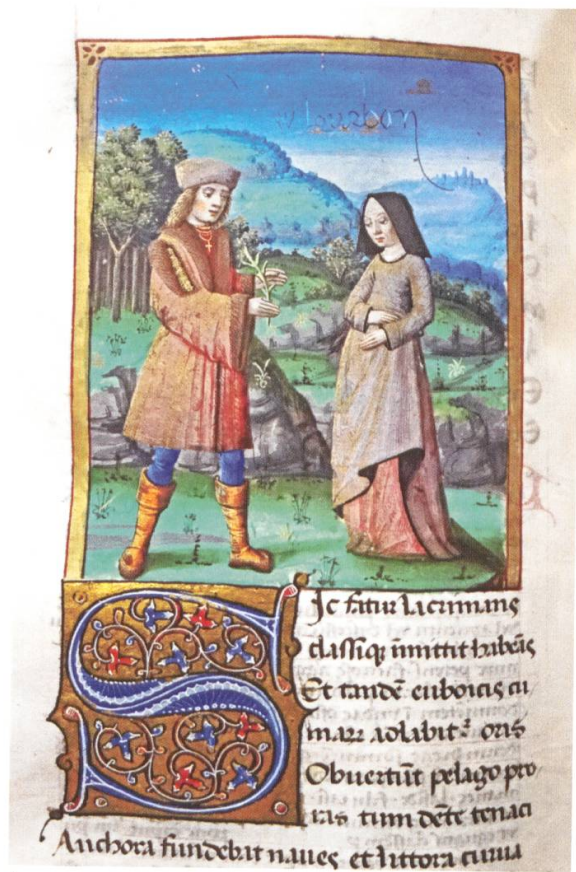 SIc fatur lacrimans
classiqꝫ immittit habēas
Et tandē euboicis cu
maꝝ adlabitᷣ oris
Obuertūt pelago pro
ras tum dēte tenaci
Anchora fundebat naues et littora curua